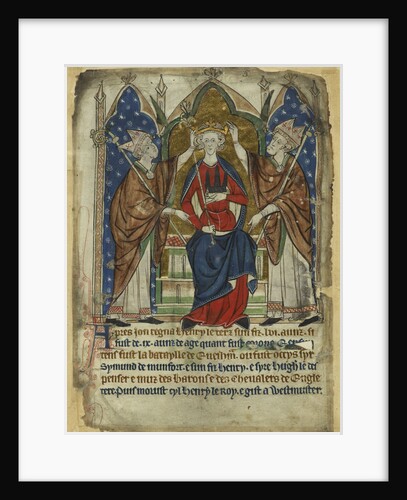 Apres Jon regna Henry le terz sun fiz .lvi. aunz. si
fust de .ix. aunz de age quant fust
tens fust la bataylle de Evesham. ou fust occys syre
Symund de munfort. e sun fiz Henry. e syre Hugh le des
penser e muz des barons e des chevalers de Engle
tere. Puis morust cyl Henry le Roy. e gist a Westmuster.